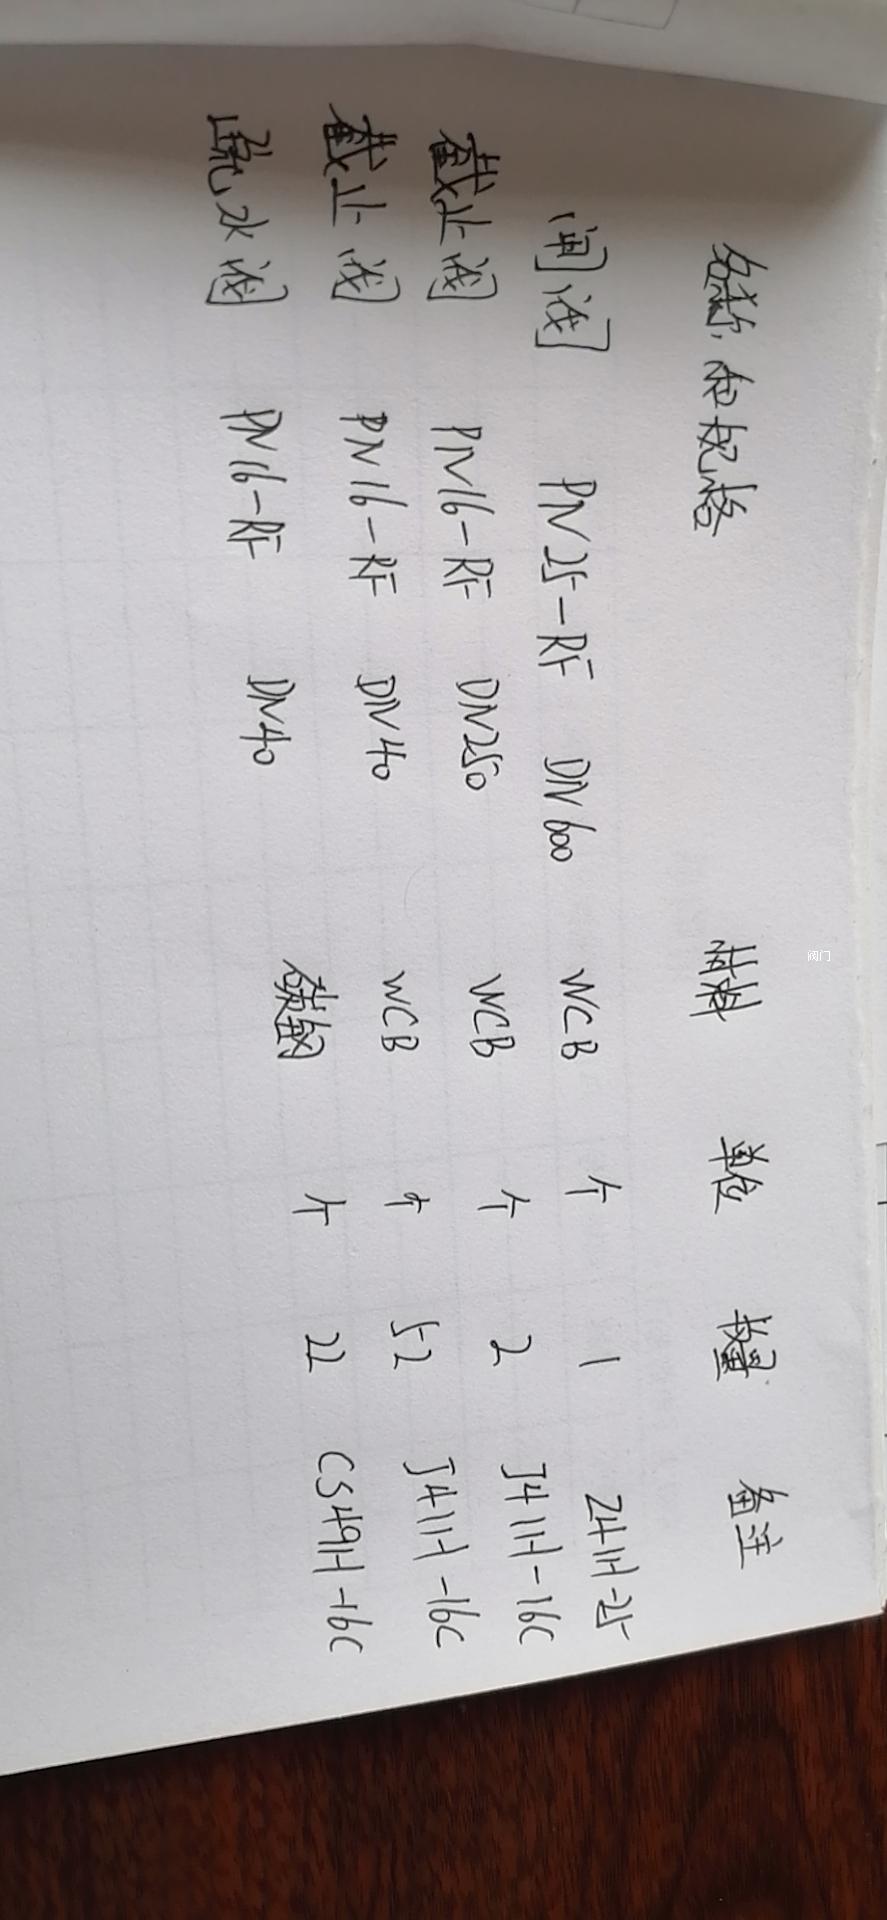 名称及规格 材料 单位 数量 备注
闸阀 PN25-RF DN600 WCB 个 1 Z41H-25
截止阀 PN16-RF DN250 WCB 个 2 J41H-16C
截止阀 PN16-RF DN40 WCB 个 52 J41H-16C
疏水阀 PN16-RF DN40 碳钢 个 22 CS49H-16C
阀门